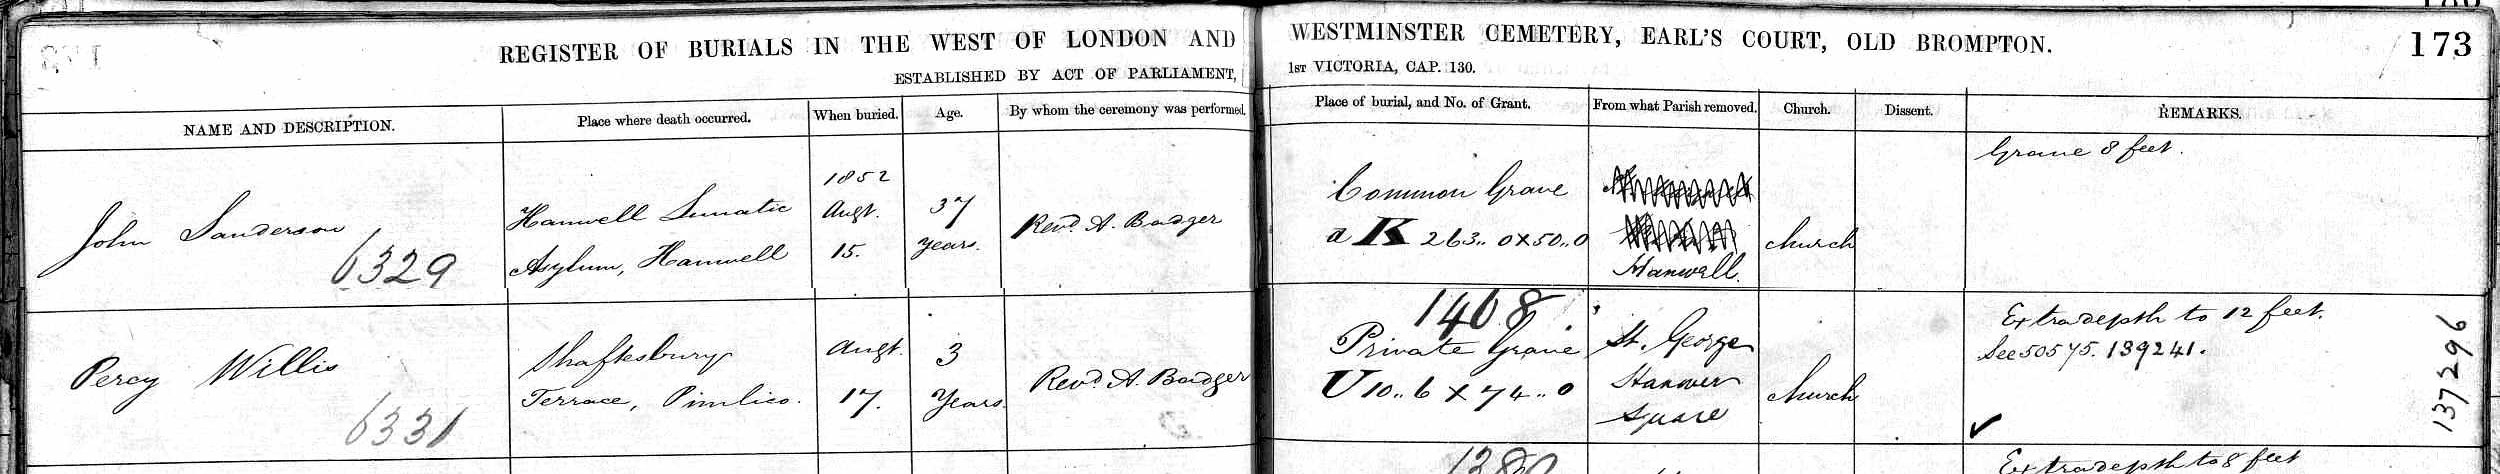 REGISTER OF BURIALS IN THE WEST OF LONDON AND WESTMINSTER CEMETERY, EARL'S COURT, OLD BROMPTON.
173
ESTABLISHED BY ACT OF PARLIAMENT, 1ST VICTORIA, CAP. 130.
NAME AND DESCRIPTION.
Place where death occurred.
When buried.
Age.
By whom the ceremony was performed.
Place of burial, and No. of Grant.
From what Parish removed.
Church.
Dissent.
REMARKS.
John Sanderson
6329
Hanwell Lunatic
Asylum, Hanwell
1852
Augt.
15.
37
years.
Revd. A. Badger
Common Grave
a K 263,, 0 X 50,, 0
Hanwell
Church
Grave 8 feet.
Percy Willis
6331
Shaftesbury
Terrace, Pimlico.
Augt.
17.
3
Years
Revd. A. Badger
1408
Private Grave
U 10,, 6 X 74,, 0
St. George
Hanover
Square
Church
Extra depth to 12 feet.
See 50575. 139241.
137296
1380
Extra depth to 8 feet